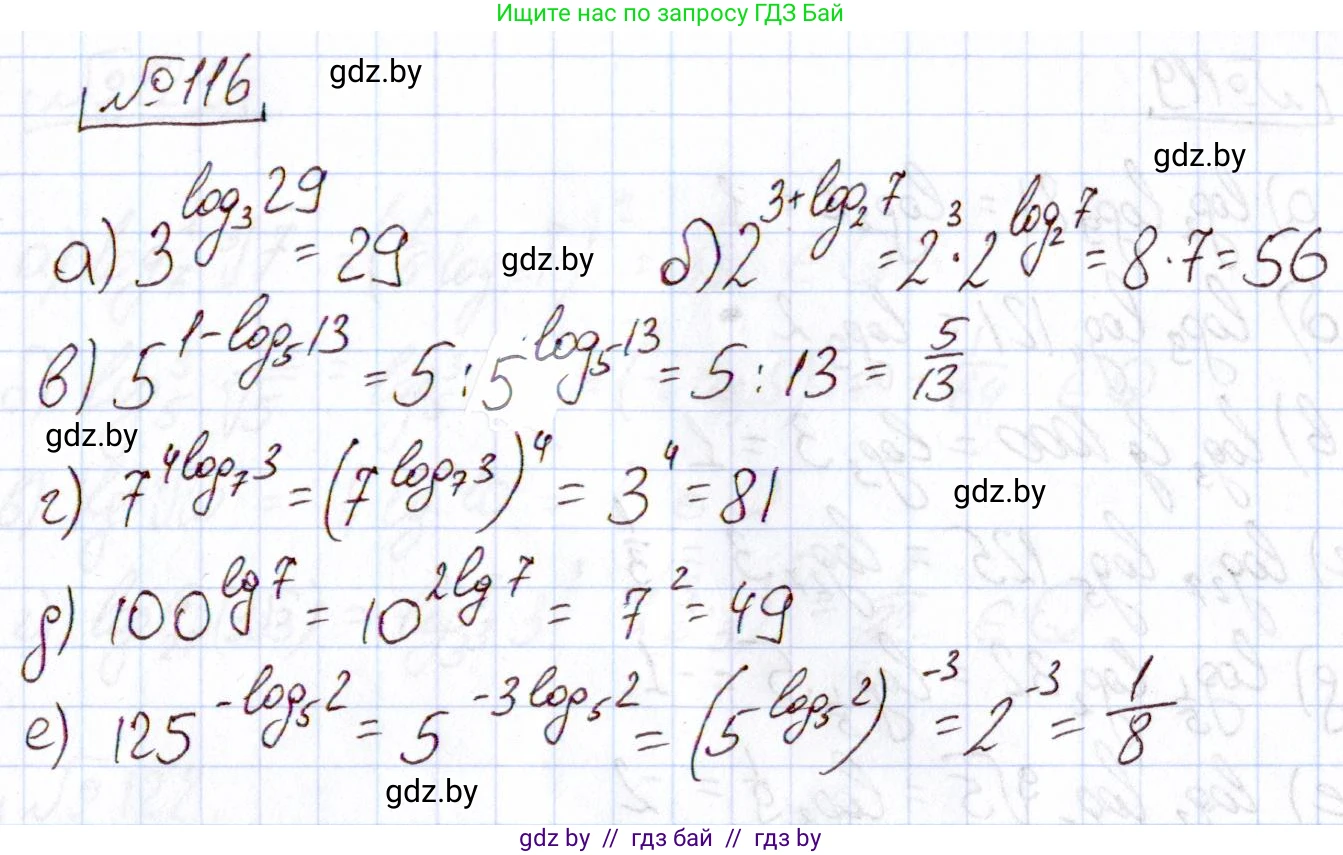 Ищите нас по запросу ГДЗ Бай
№116 gdz.by
gdz.by
а) 3^{log₃29} = 29 gdz.by б) 2^{3+log₂7} = 2³·2^{log₂7} = 8·7 = 56
в) 5^{1-log₅13} = 5 : 5^{log₅13} = 5 : 13 = 5/13
gdz.by
г) 7^{4log₇3} = (7^{log₇3})⁴ = 3⁴ = 81 gdz.by
д) 100^{lg7} = 10^{2lg7} = 7² = 49
е) 125^{-log₅2} = 5^{-3log₅2} = (5^{log₅2})^{-3} = 2^{-3} = 1/8
gdz.by
gdz by // гдз бай // гдз by